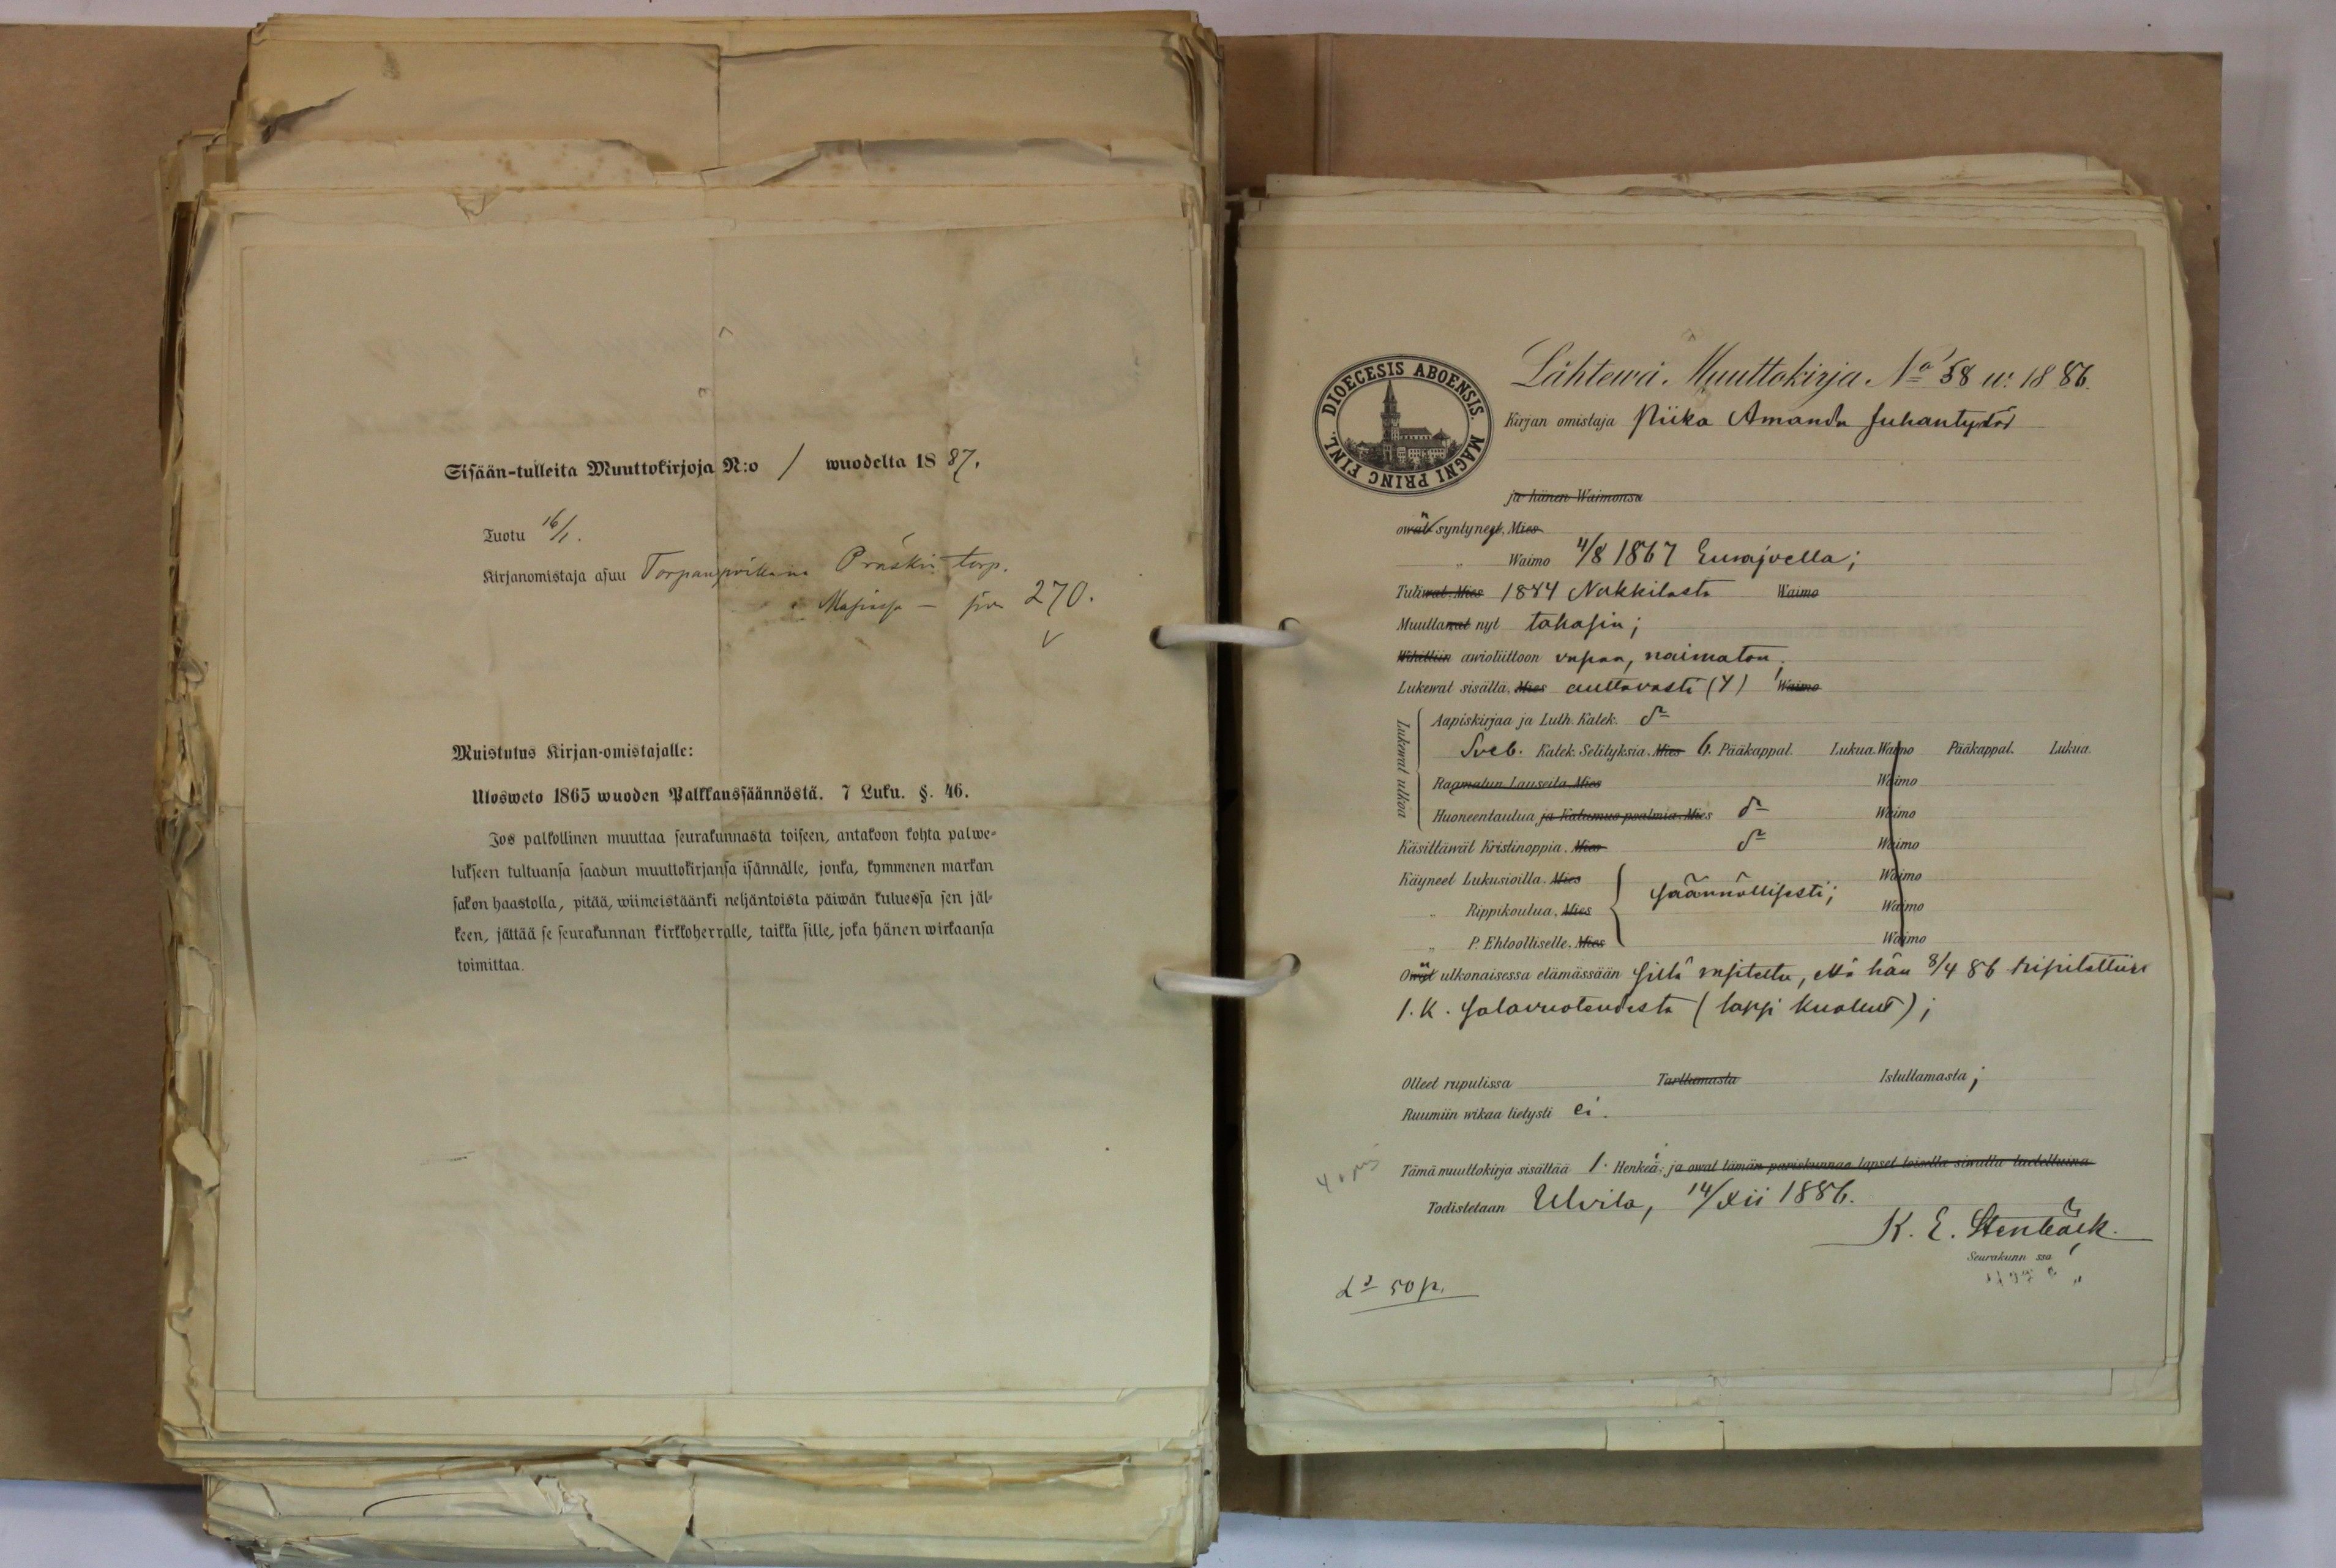 Sisään-tulleita Muuttokirjoja N:o 1 wuodelta 1887.
Tuotu 16/1.
Kirjanomistaja asuu Präskin torp.
270.
Muistutus Kirjan-omistajalle:
Ulosweto 1865 wuoden Palkkaussäännöstä. 7 Luku. §. 46.
Jos palkollinen muuttaa seurakunnasta toiseen, antakoon kohta palwe-
lukseen tultuansa saadun muuttokirjansa isännälle, jonka, kymmenen markan
sakon haastolla, pitää, wiimeistäänki neljäntoista päiwän kuluessa sen jäl-
keen, jättää se seurakunnan kirkkoherralle, taikka sille, joka hänen wirkaansa
toimittaa.
DIOECESIS ABOENSIS. MAGNI PRINC FINL.
Lähtewä Muuttokirja No 58 w. 1886.
Kirjan omistaja Piika Amanda Juhantytär
ja hänen Waimonsa
owat syntyneet, Mies
„ Waimo 4/8 1867 Eurajoella;
Tuliwat, Mies 1884 Nakkilasta Waimo
Muuttawat nyt takasin;
Wihittiin awioliittoon vapaa, naimaton,
Lukewat sisältä, Mies auttavasti (4) Waimo
Lukewat ulkoa
Aapiskirjaa ja Luth. Katek.
Sveb. Katek. Selityksiä, Mies 6. Pääkappal. Lukua. Waimo Pääkappal. Lukua.
Raamatun Lauseita Mies Waimo
Huoneentaulua ja Katumus psalmia Mies Waimo
Käsittäwät Kristinoppia, Mies Waimo
Käyneet Lukusioilla, Mies säännöllisesti; Waimo
„ Rippikoulua, Mies Waimo
„ P. Ehtoolliselle, Mies Waimo
Owat ulkonaisessa elämässään sillä että hän 8/4 86 ripitettiin
1. K. salavuoteudesta (lapsi kuollut);
Olleet rupulissa Tarttumasta Istuttamasta;
Ruumiin wikaa tietysti ei.
Tämä muuttokirja sisältää 1. Henkeä; ja owat tämän pariskunnan lapset toisella siwulla luetelluina
Todistetaan Ulvila, 14/XII 1886.
K. E. Stenbäck.
Seurakunn ssa
50 p.